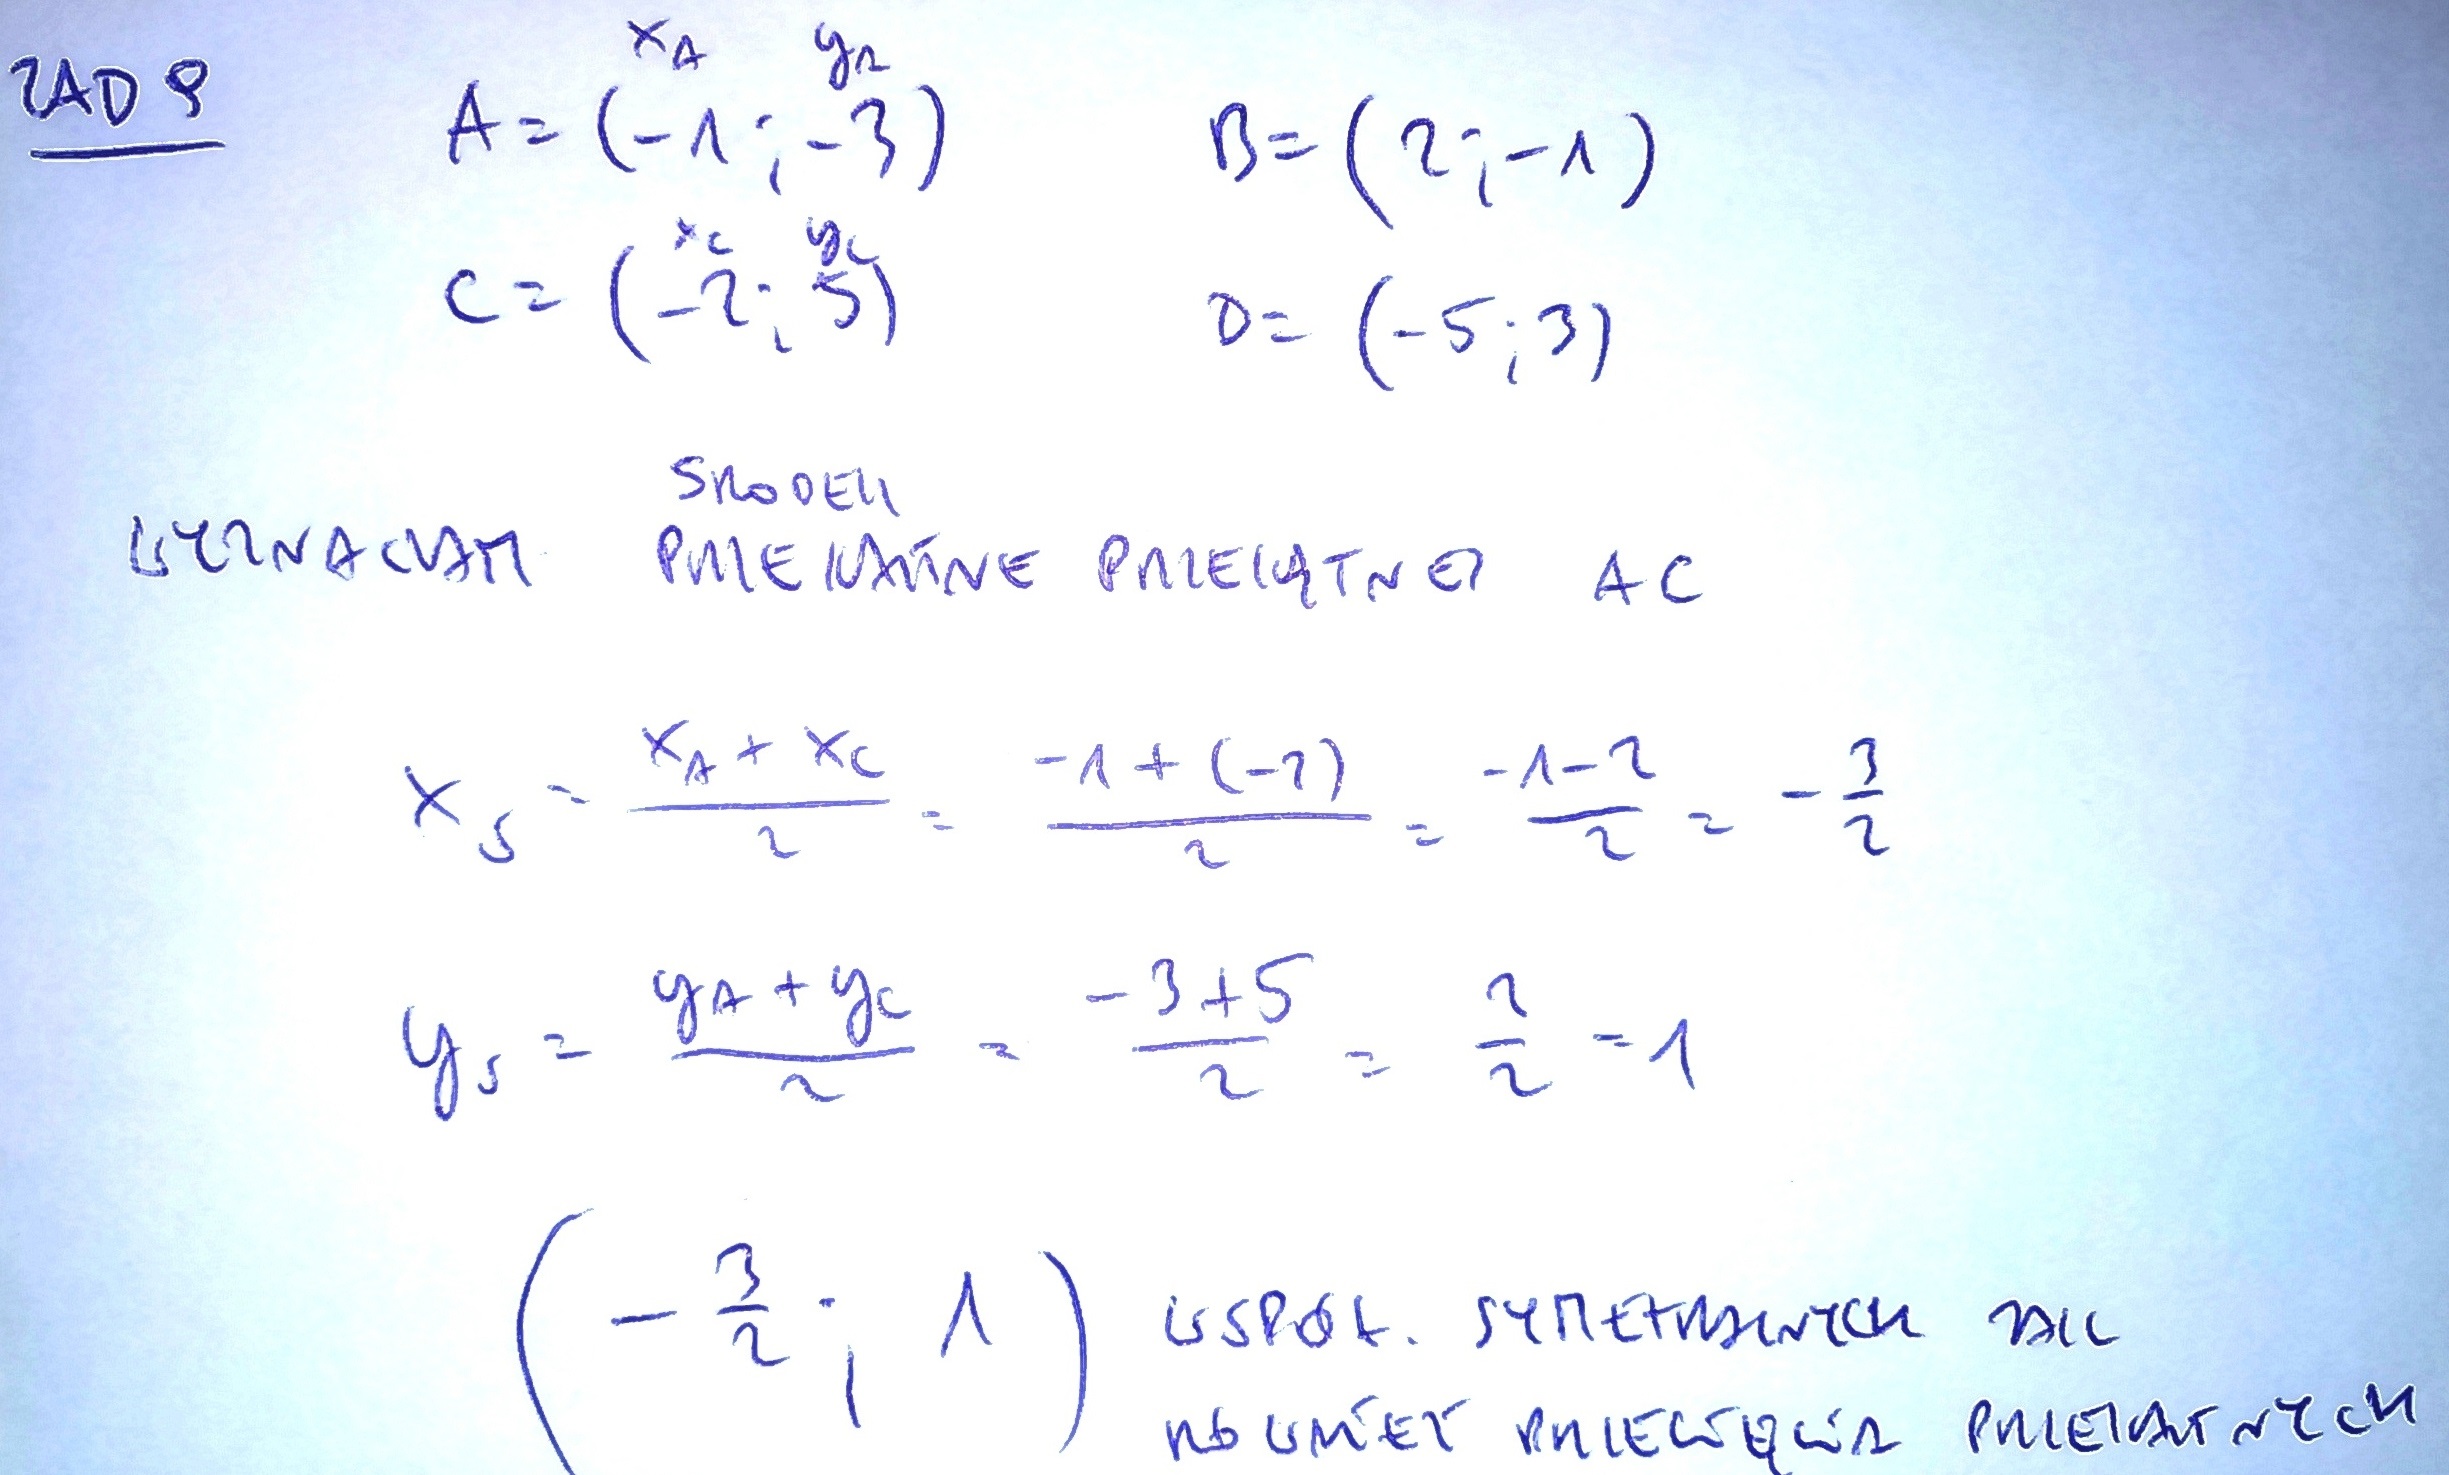 ZAD 9
x_A y_A
A = (-1 ; -3) B = (2 ; -1)
x_C y_C
C = (-2 ; 5) D = (-5 ; 3)
ŚRODEK
WYZNACZAM PRZEKĄTNE PRZEKĄTNEJ AC
x_S = \frac{x_A + x_C}{2} = \frac{-1 + (-2)}{2} = \frac{-1-2}{2} = -\frac{3}{2}
y_S = \frac{y_A + y_C}{2} = \frac{-3+5}{2} = \frac{2}{2} = 1
(-\frac{3}{2} ; 1) WSPÓŁ.
PRZECIĘCIA PRZEKĄTNYCH